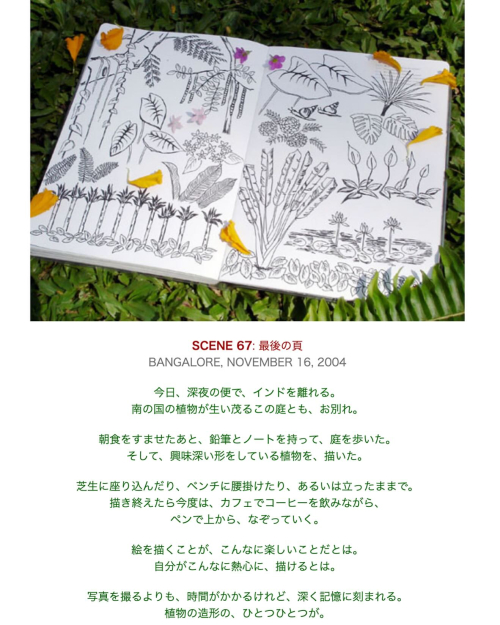 SCENE 67: 最後の頁
BANGALORE, NOVEMBER 16, 2004
今日、深夜の便で、インドを離れる。
南の国の植物が生い茂るこの庭とも、お別れ。
朝食をすませたあと、鉛筆とノートを持って、庭を歩いた。
そして、興味深い形をしている植物を、描いた。
芝生に座り込んだり、ベンチに腰掛けたり、あるいは立ったままで。
描き終えたら今度は、カフェでコーヒーを飲みながら、
ペンで上から、なぞっていく。
絵を描くことが、こんなに楽しいことだとは。
自分がこんなに熱心に、描けるとは。
写真を撮るよりも、時間がかかるけれど、深く記憶に刻まれる。
植物の造形の、ひとつひとつが。